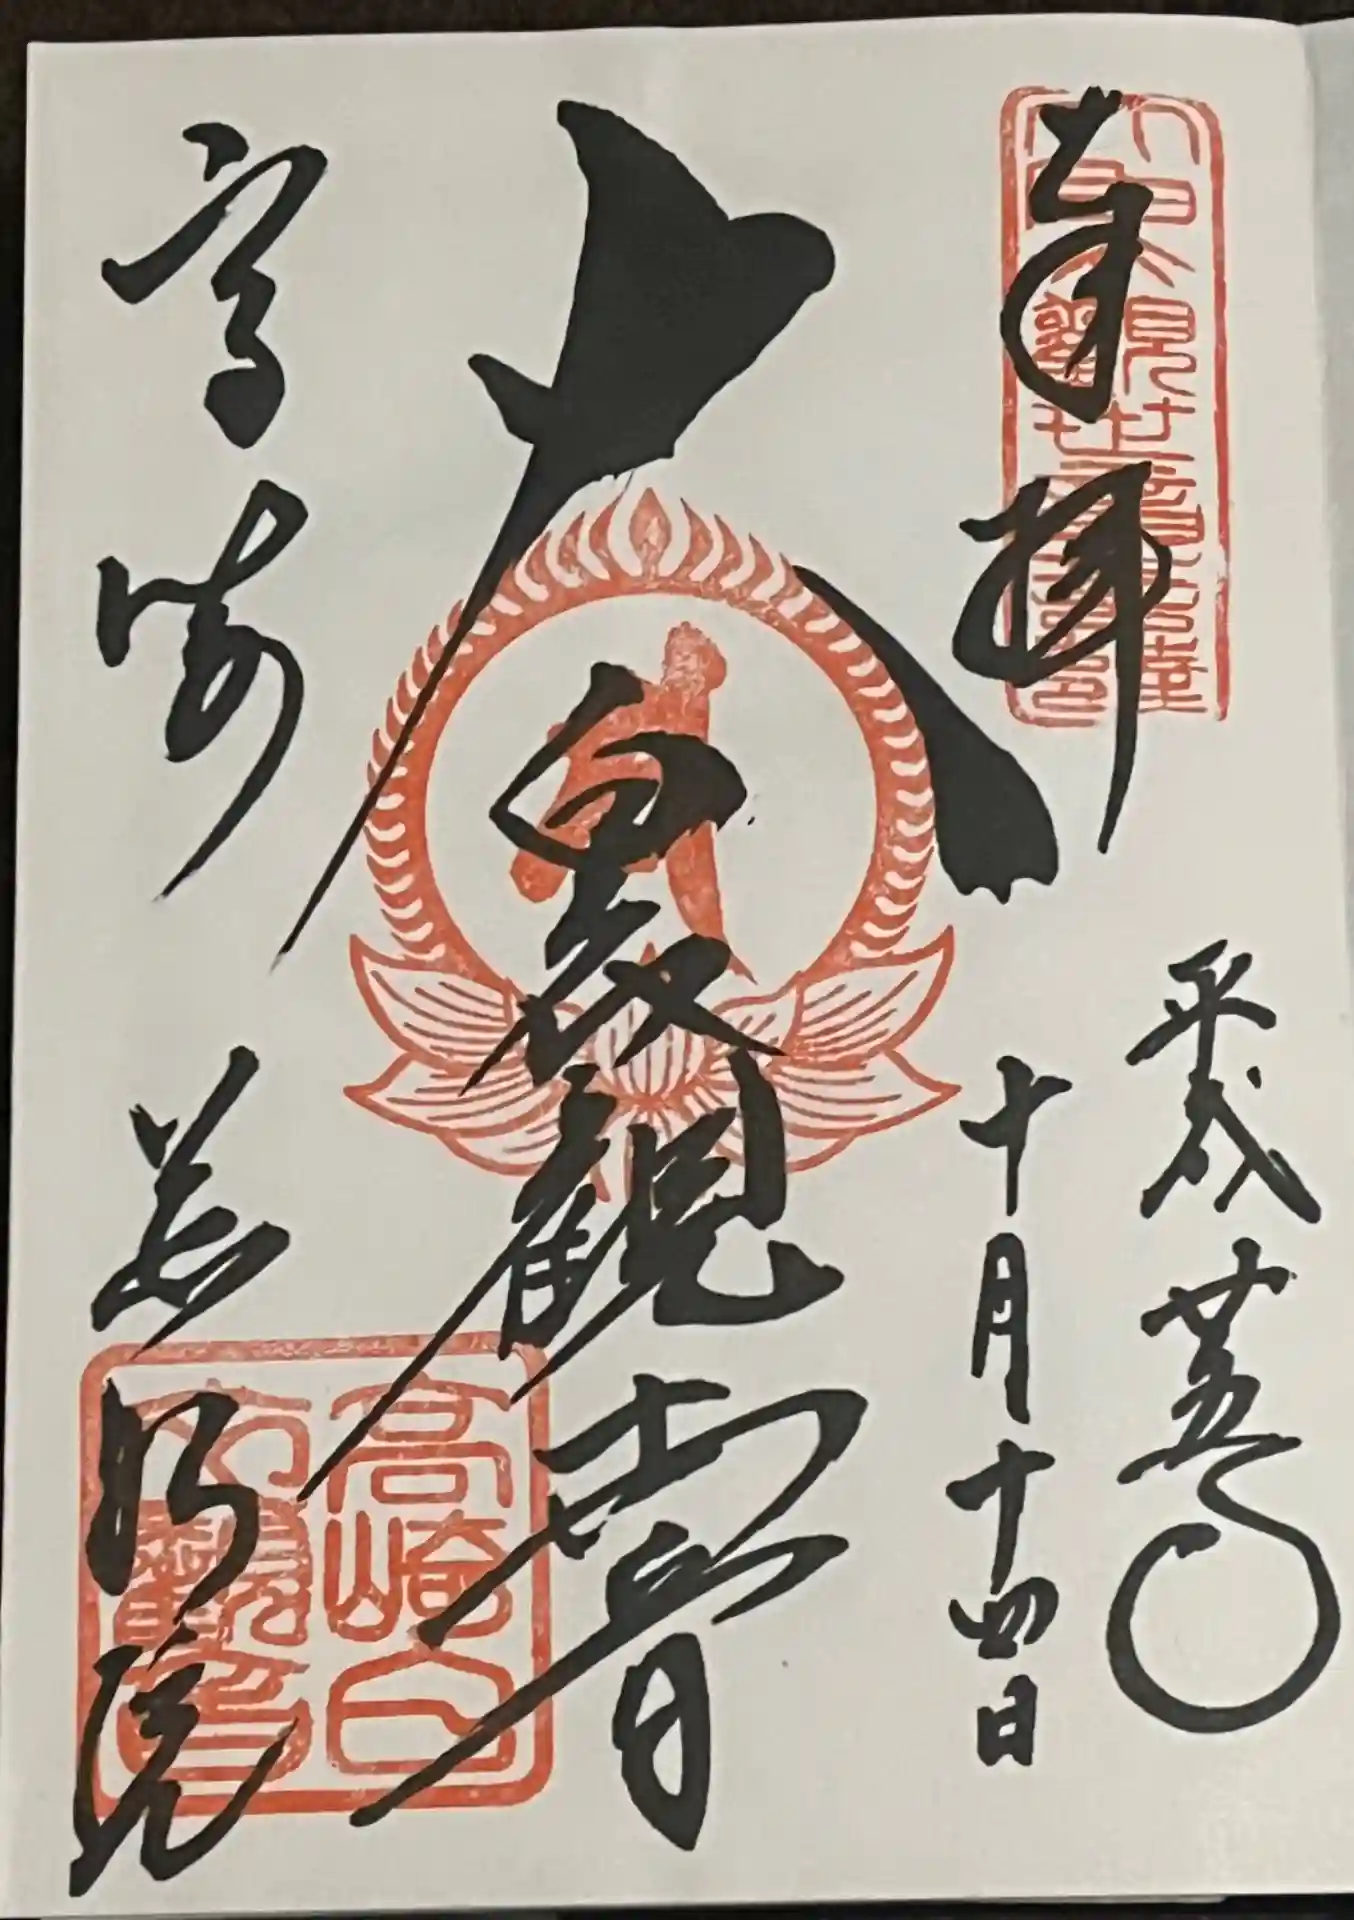 奉拝
平成廿五年
十月十四日
大白衣観世音
高崎 慈眼院
高崎白
衣觀音